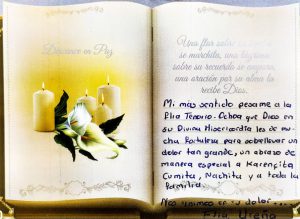 Descanse en Paz
Una flor sobre su
se marchita, una lágrima
sobre su recuerdo se evapora,
una oración por su alma la
recibe Dios.
Mi más sentido pesame a la
Flia Tenorio-Ochoa que Dios en
su Divina Misericordia les de mu-
cha Fortaleza para sobrellevar un
dolor tan grande, un abrazo de
manera especial a Karencita
Cumita, Nachita y a toda la
Familia.
Nos unimos en su dolor...
Flia Ureña